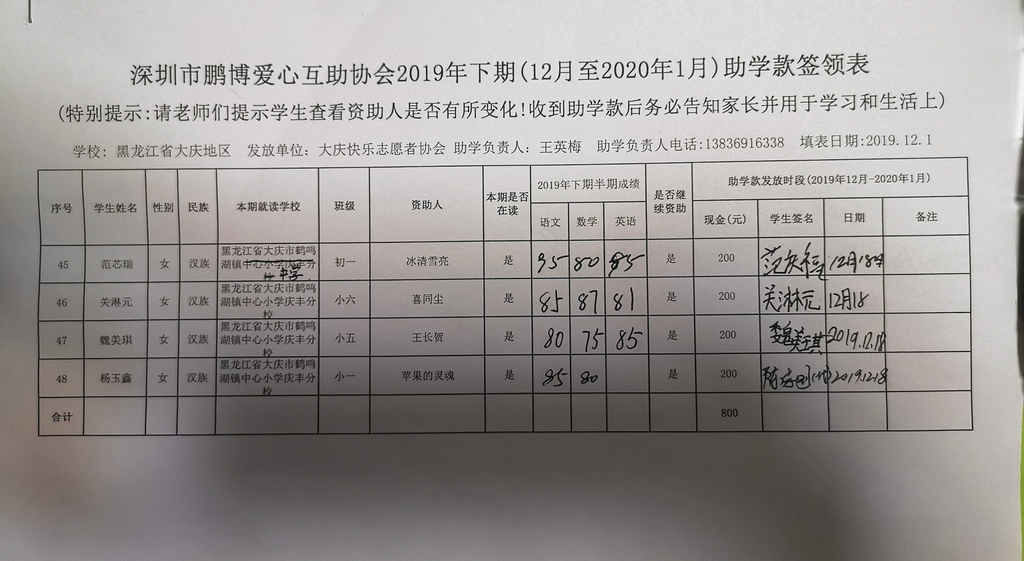 深圳市鹏博爱心互助协会2019年下期(12月至2020年1月)助学款签领表
(特别提示:请老师们提示学生查看资助人是否有所变化!收到助学款后务必告知家长并用于学习和生活上)
学校: 黑龙江省大庆地区 发放单位: 大庆快乐志愿者协会 助学负责人: 王英梅 助学负责人电话:13836916338 填表日期:2019.12.1
序号 学生姓名 性别 民族 本期就读学校 班级 资助人 本期是否在读 2019年下期半期成绩 是否继续资助 助学款发放时段(2019年12月-2020年1月)
语文 数学 英语 现金(元) 学生签名 日期 备注
45 范芯瑞 女 汉族 黑龙江省大庆市鹤鸣湖镇中心小学庆丰分校 中学 初一 冰清雪亮 是 95 80 85 是 200 12月18
46 关淋元 女 汉族 黑龙江省大庆市鹤鸣湖镇中心小学庆丰分校 小六 喜同尘 是 85 87 81 是 200 关淋元 12月18
47 魏美琪 女 汉族 黑龙江省大庆市鹤鸣湖镇中心小学庆丰分校 小五 王长贺 是 80 75 85 是 200 魏美琪 2019.12.18
48 杨玉鑫 女 汉族 黑龙江省大庆市鹤鸣湖镇中心小学庆丰分校 小一 苹果的灵魂 是 85 80 是 200 2019.12.18
合计 800